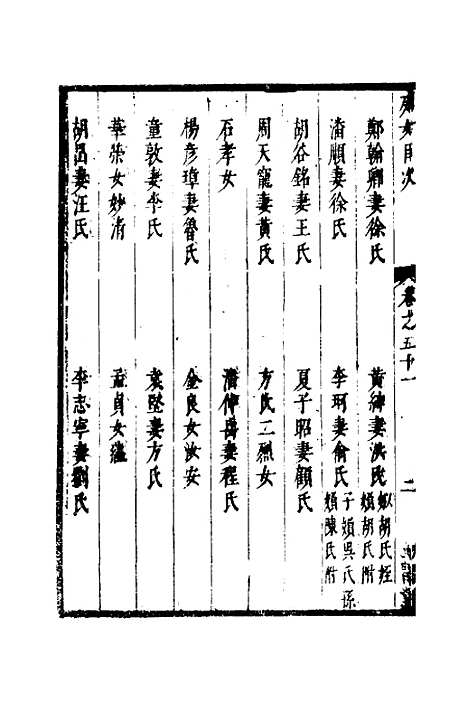 列女目次
卷之五十一
二
鄭翰卿妻徐氏
黃緯妻洪氏
姒胡氏姪
媍胡氏附
潘順妻徐氏
李珂妻俞氏
子媍吳氏孫
媍陳氏附
胡谷銘妻王氏
夏子昭妻顧氏
周天寵妻黃氏
方氏二烈女
石孝女
潘仲岳妻程氏
楊彥璋妻魯氏
金良女汝安
童敦妻李氏
袁堅妻方氏
華榮女妙清
孟貞女蘊
胡昌妻汪氏
李志寧妻劉氏